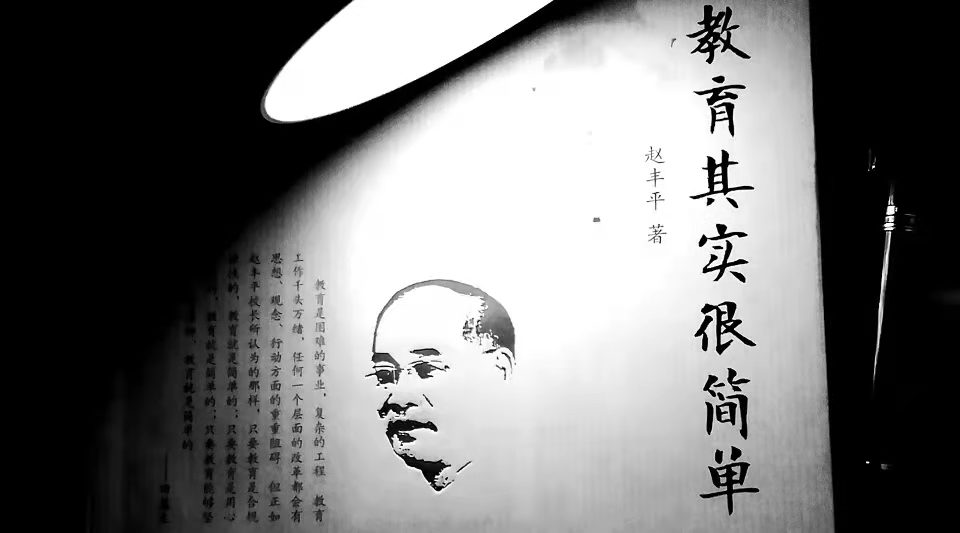 教育其实很简单
赵丰平 著
教育是困难的事业，复杂的工程 教育
工作千头万绪，任何一个层面的改革都会有
思想、观念、行动方面的重重阻碍 但正如
赵丰平校长所认为的那样，只要教育是合规
的，教育就是简单的；只要教育是用心
，教育就是简单的；只要教育能够坚
，教育就是简单的